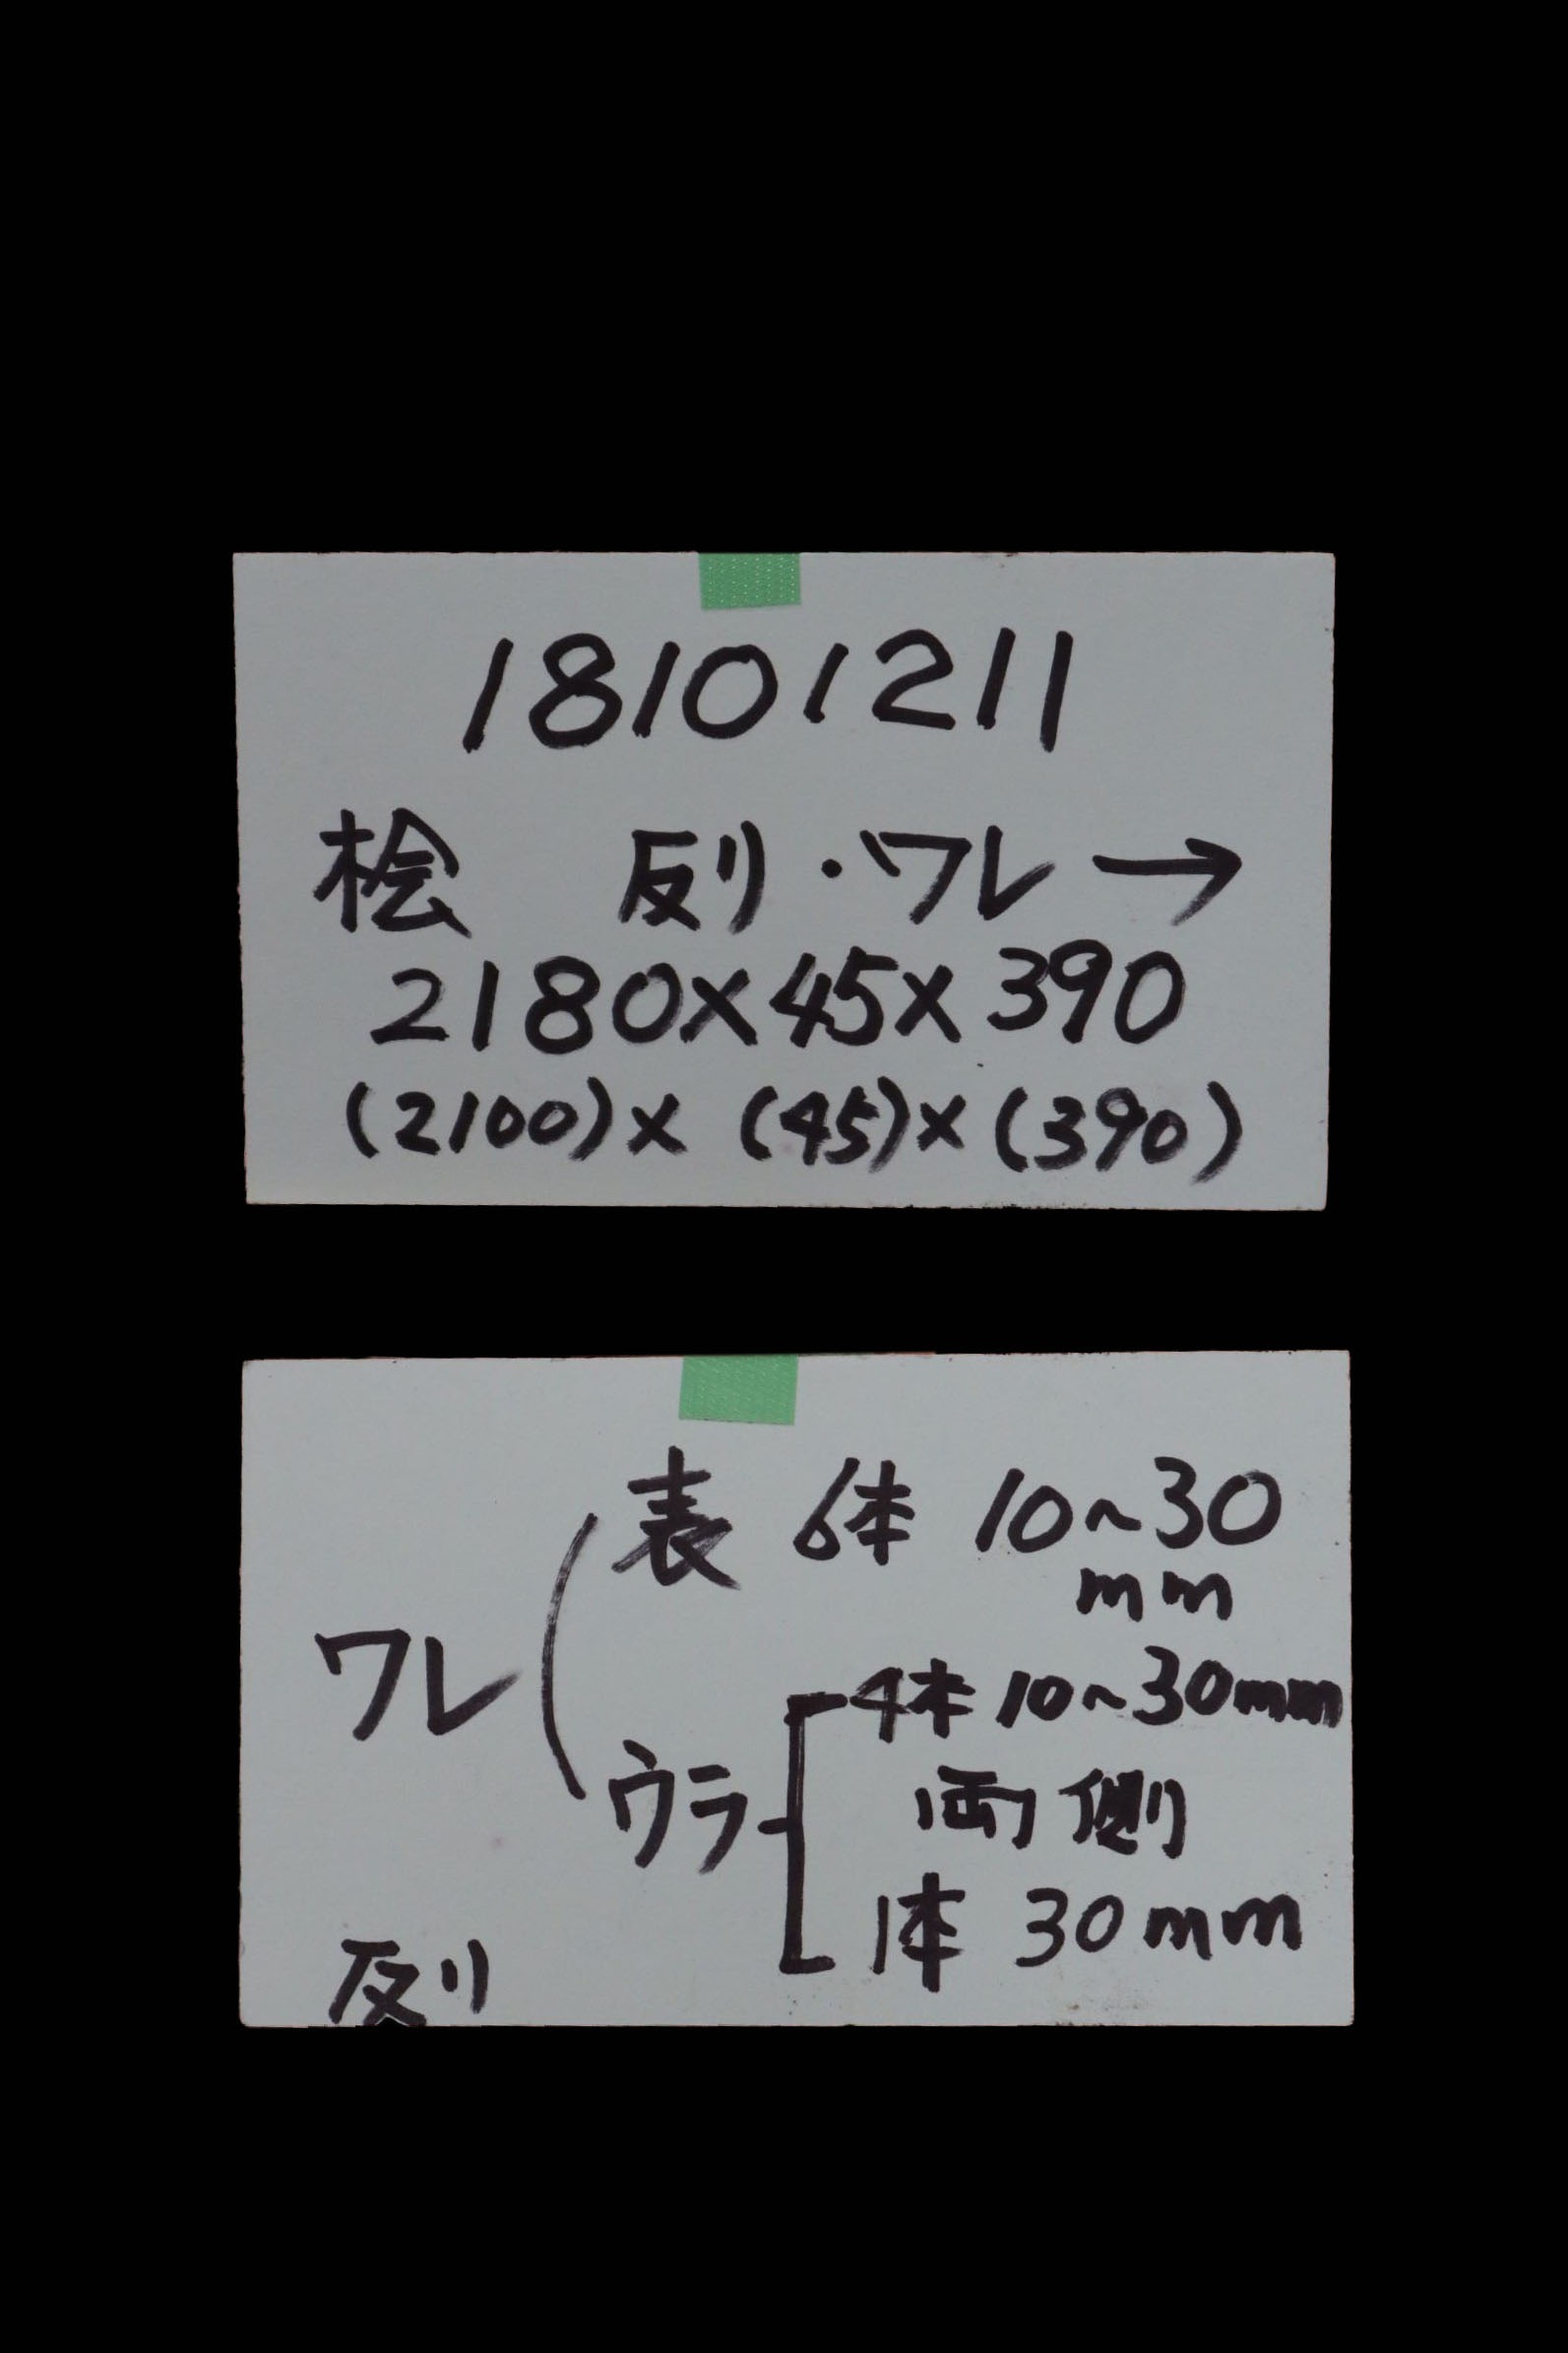 18101211
桧 反り・ワレ→
2180×45×390
(2100)×(45)×(390)
表 6本 10~30
mm
ワレ
4本 10~30mm
ウラ
両側
1本 30mm
反り